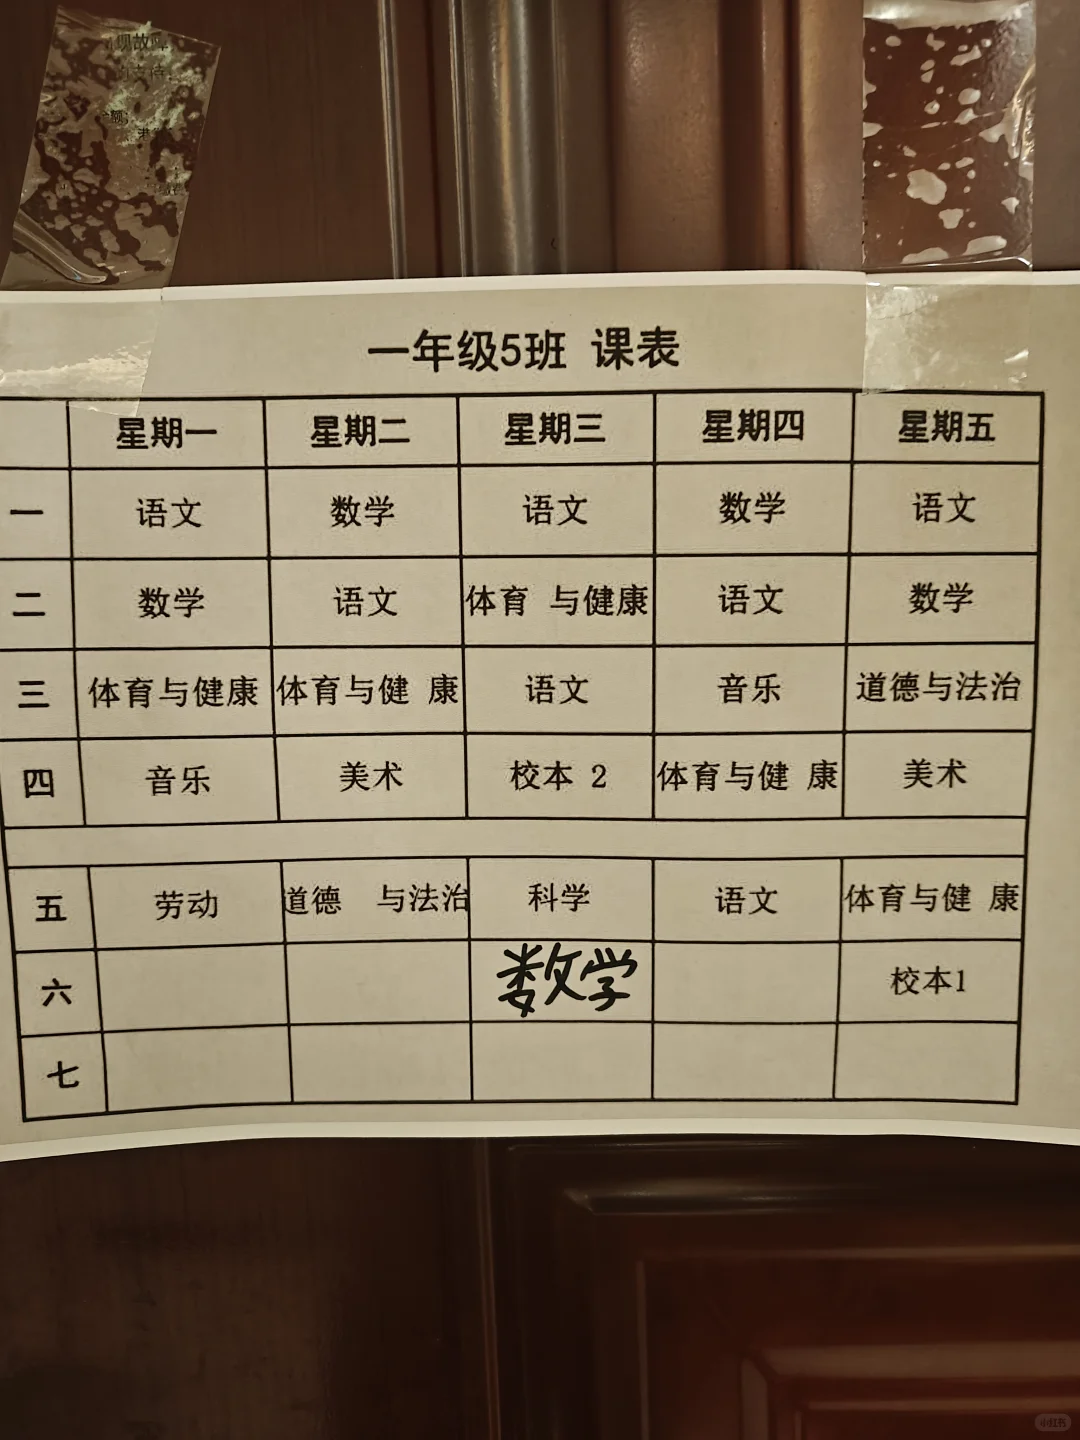 现故障
一年级5班 课表
星期一 星期二 星期三 星期四 星期五
一 语文 数学 语文 数学 语文
二 数学 语文 体育 与健康 语文 数学
三 体育与健康 体育与健 康 语文 音乐 道德与法治
四 音乐 美术 校本 2 体育与健 康 美术
五 劳动 道德 与法治 科学 语文 体育与健 康
六 数学 校本1
七
小红书